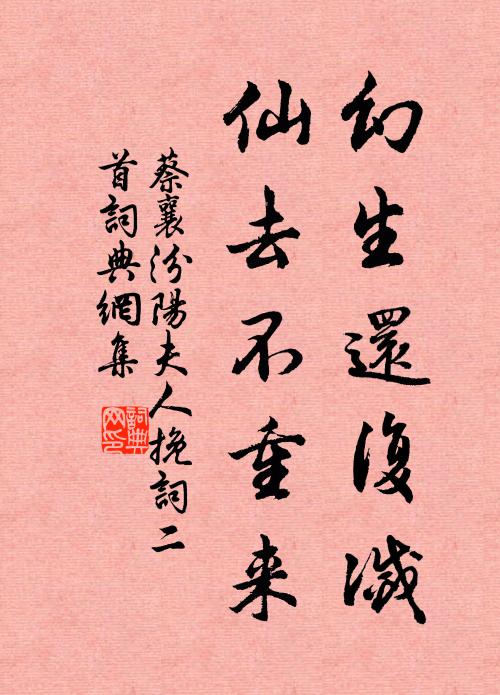 幻生還復滅
仙去不重来
蔡襄汾陽夫人挽詞二
首詞典網集
詞典
网印